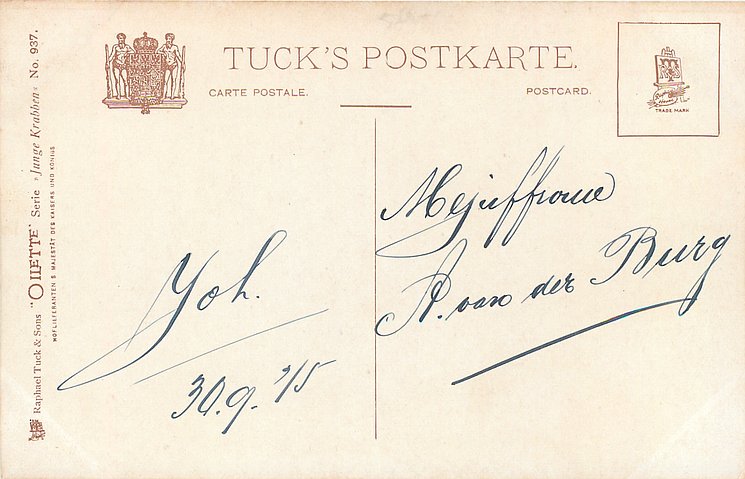 TUCK'S POSTKARTE.
CARTE POSTALE.
POSTCARD.
TRADE MARK
Raphael Tuck & Sons "OILETTE" Serie „Junge Krabben" No. 937.
HOFLIEFERANTEN S. MAJESTÄT DES KAISERS UND KÖNIGS
Mejuffrouw
A. van der Burg
Joh.
30.9.'15